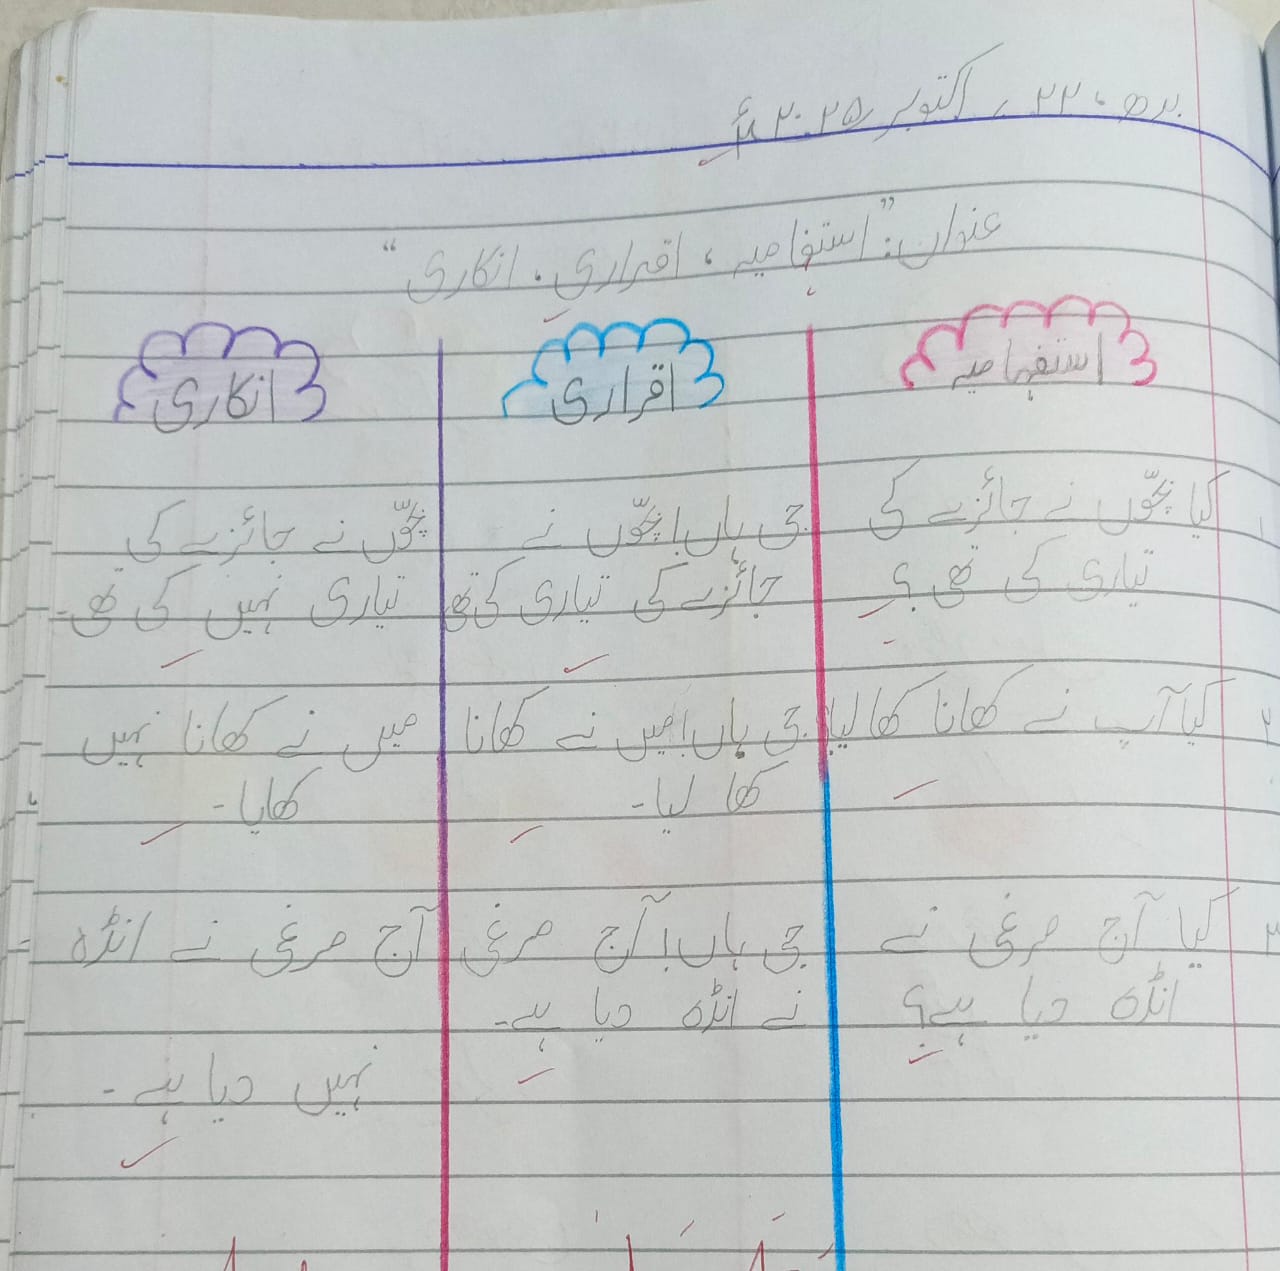 بدھ، ۲۲، اکتوبر ۲۰۲۵ء
عنوان: ”استفہامیہ، اقراری، انکاری“
استفہامیہ
اقراری
انکاری
۱ کیا بچّوں نے جائزے کی
تیاری کی تھی؟
جی ہاں! بچّوں نے
جائزے کی تیاری کی تھی
بچّوں نے جائزے کی
تیاری نہیں کی تھی۔
۲ کیا آپ نے کھانا کھا لیا
جی ہاں! میں نے کھانا
کھا لیا۔
میں نے کھانا نہیں
کھایا۔
۳ کیا آج مرغی نے
انڈہ دیا ہے؟
جی ہاں! آج مرغی
نے انڈہ دیا ہے۔
آج مرغی نے انڈہ
نہیں دیا ہے۔